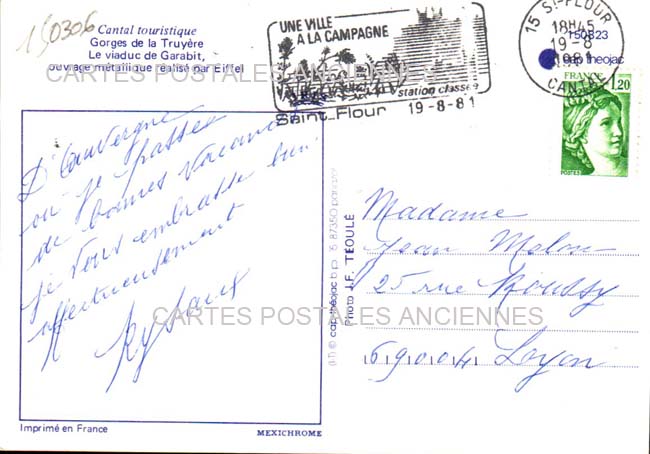 150306
Cantal touristique
Gorges de la Truyère
Le viaduc de Garabit,
ouvrage métallique réalisé par Eiffel
UNE VILLE
A LA CAMPAGNE
station classée
Saint_Flour 19-8-81
15 ST-FLOUR
18H45
19-8
1981
CANTAL
150823
cap theojac
FRANCE
1,20
POSTES
CARTES POSTALES ANCIENNES
D'Auvergne
où je passe
de bonnes vacances
je vous embrasse bien
affectueusement
Madame
Jean Melon
25 rue Roussy
69004 Lyon
CARTES POSTALES ANCIENNES
© cap-théojac b.p. 87350 panazol
Photo J.F. TEOULÉ
Imprimé en France
MEXICHROME